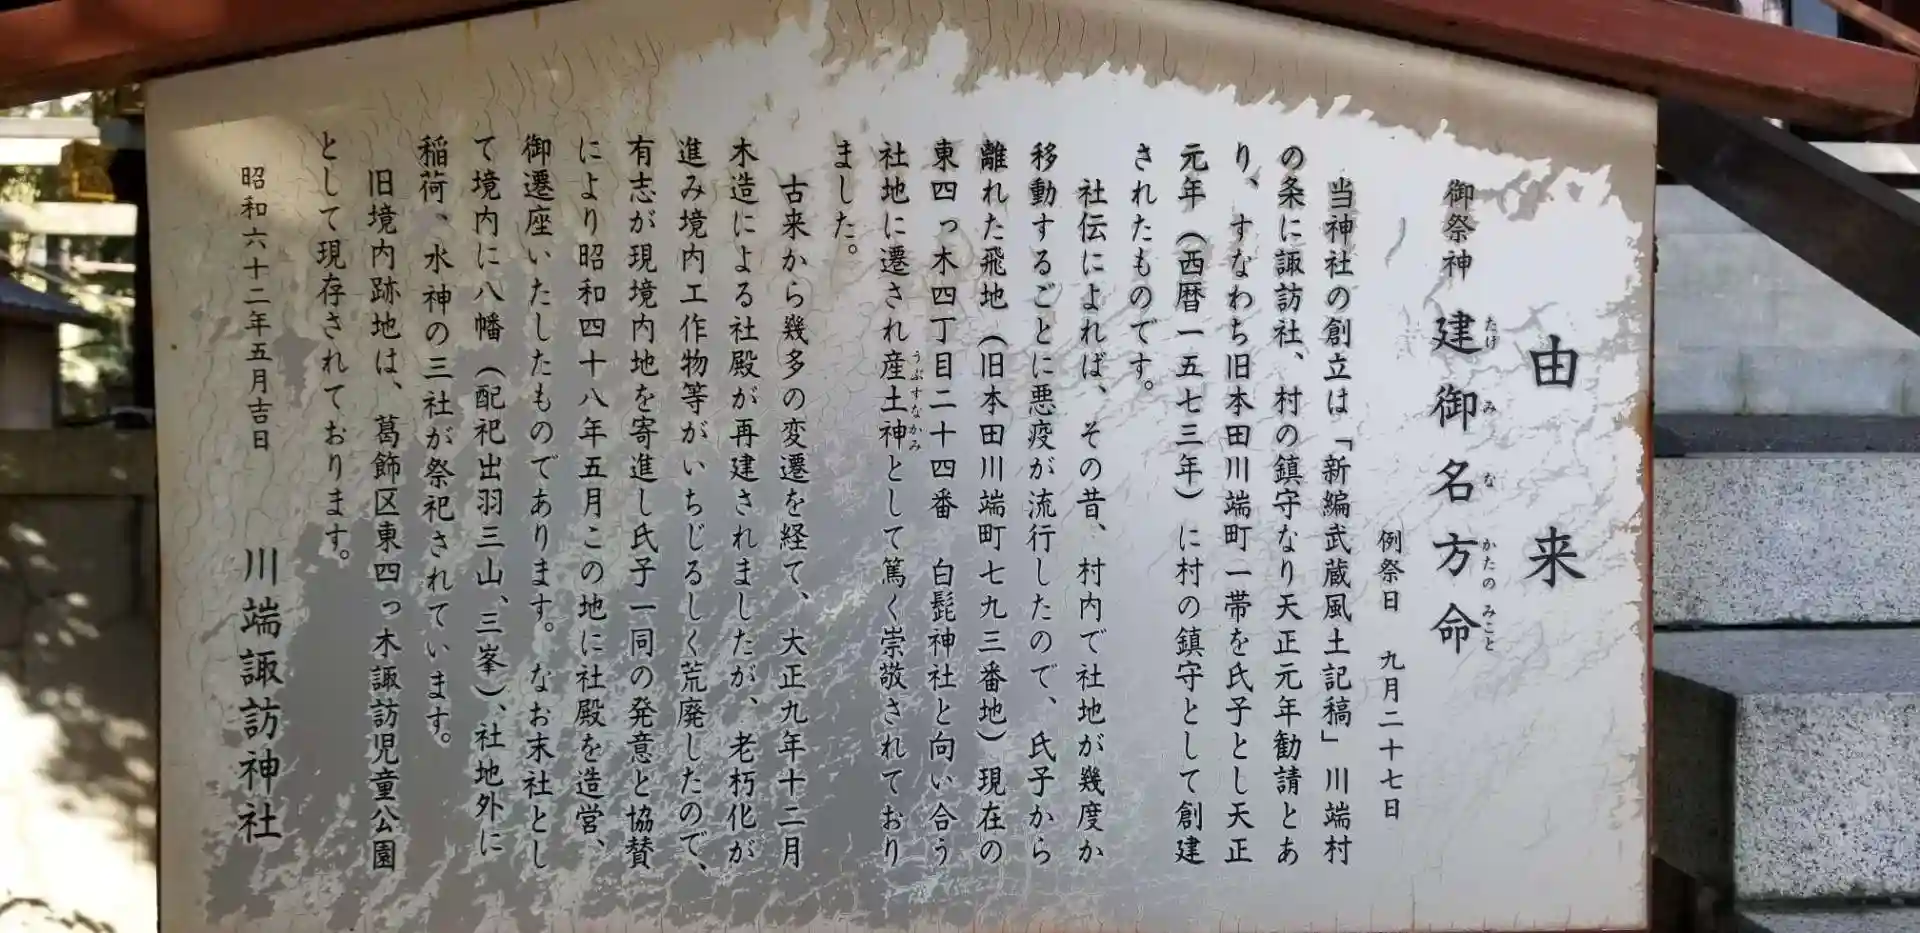 由来
御祭神 建御名方命
たけ み な かたの みこと
例祭日 九月二十七日
当神社の創立は「新編武蔵風土記稿」川端村
の条に諏訪社、村の鎮守なり天正元年勧請とあ
り、すなわち旧本田川端町一帯を氏子とし天正
元年（西暦一五七三年）に村の鎮守として創建
されたものです。
社伝によれば、その昔、村内で社地が幾度か
移動するごとに悪疫が流行したので、氏子から
離れた飛地（旧本田川端町七九三番地）現在の
東四つ木四丁目二十四番 白髭神社と向い合う
社地に遷され産土神として篤く崇敬されており
うぶすなかみ
ました。
古来から幾多の変遷を経て、大正九年十二月
木造による社殿が再建されましたが、老朽化が
進み境内工作物等がいちじるしく荒廃したので、
有志が現境内地を寄進し氏子一同の発意と協賛
により昭和四十八年五月この地に社殿を造営、
御遷座いたしたものであります。なお末社とし
て境内に八幡（配祀出羽三山、三峯）、社地外に
稲荷、水神の三社が祭祀されています。
旧境内跡地は、葛飾区東四っ木諏訪児童公園
として現存されております。
昭和六十二年五月吉日
川端諏訪神社